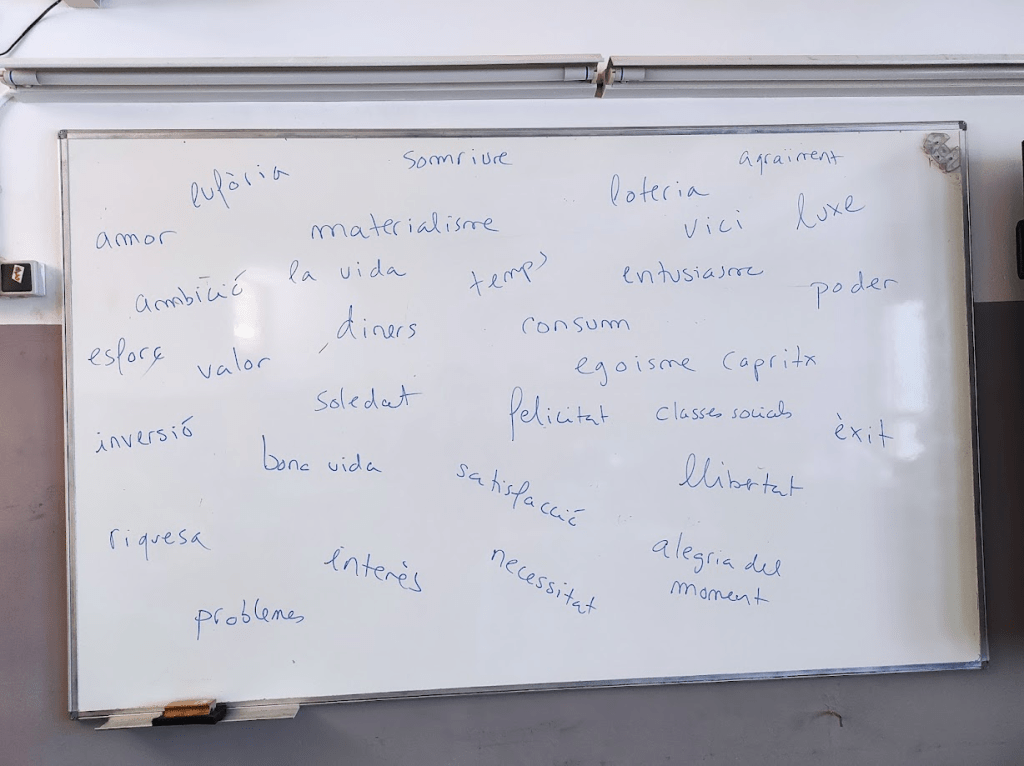 somriure
agraïment
eufòria
loteria
amor
materialisme
vici
luxe
ambició
la vida
temps
entusiasme
poder
diners
consum
esforç
valor
egoisme
capritx
soledat
felicitat
classes socials
èxit
inversió
bona vida
satisfacció
llibertat
riquesa
interès
necessitat
alegria del
moment
problemes